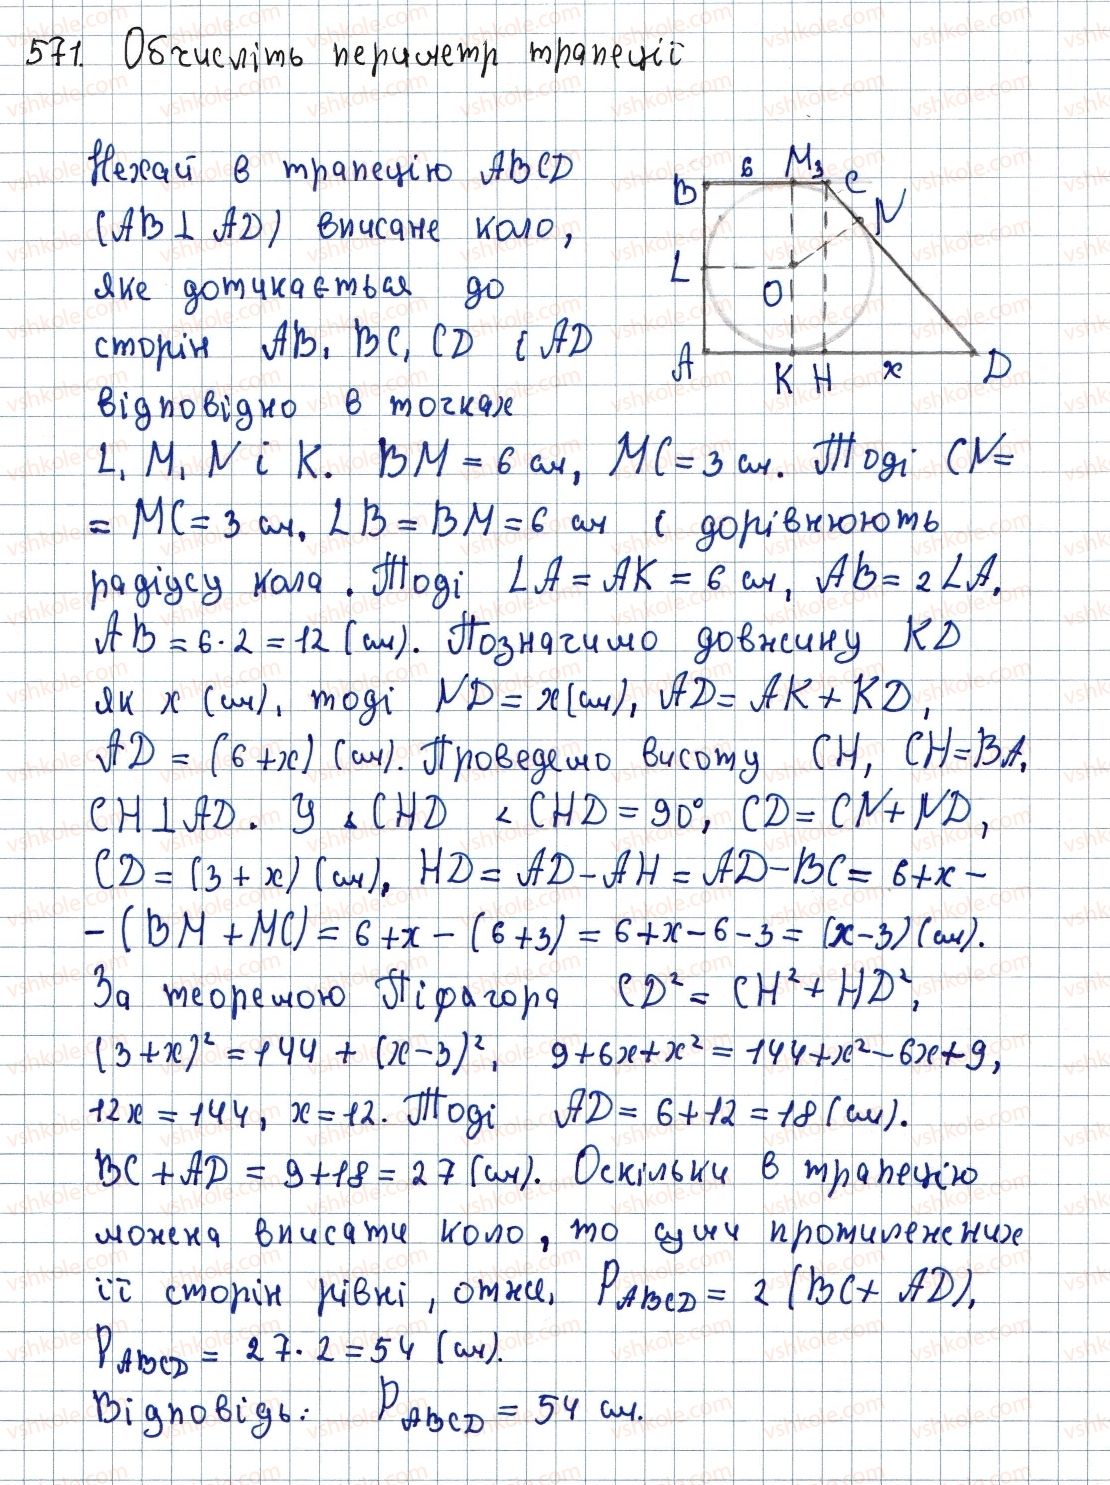 571. Обчисліть периметр трапеції
Нехай в трапецію ABCD
(AB⊥AD) вписане коло,
яке дотикається до
сторін AB, BC, CD і AD
відповідно в точках
B 6 M 3 C
N
L
O
A K H x D
L, M, N і K. BM = 6 см, MC = 3 см. Тоді CN =
= MC = 3 см. LB = BM = 6 см і дорівнюють
радіусу кола. Тоді LA = AK = 6 см, AB = 2LA.
AB = 6·2 = 12 (см). Позначимо довжину KD
як x (см), тоді ND = x (см), AD = AK + KD,
AD = (6+x) (см). Проведемо висоту CH, CH = BA,
CH⊥AD. У ▵ CHD ∠CHD = 90°, CD = CN + ND,
CD = (3 + x) (см), HD = AD – AH = AD – BC = 6+x –
– (BM + MC) = 6 + x – (6+3) = 6+x–6–3 = (x–3) (см).
За теоремою Піфагора CD² = CH² + HD²,
(3+x)² = 144 + (x–3)², 9+6x+x² = 144+x²–6x+9,
12x = 144, x = 12. Тоді AD = 6+12 = 18 (см).
BC + AD = 9+18 = 27 (см). Оскільки в трапецію
можна вписати коло, то суми протилежних
її сторін рівні, отже, P ABCD = 2 (BC + AD),
P ABCD = 27·2 = 54 (см).
Відповідь: P ABCD = 54 см.